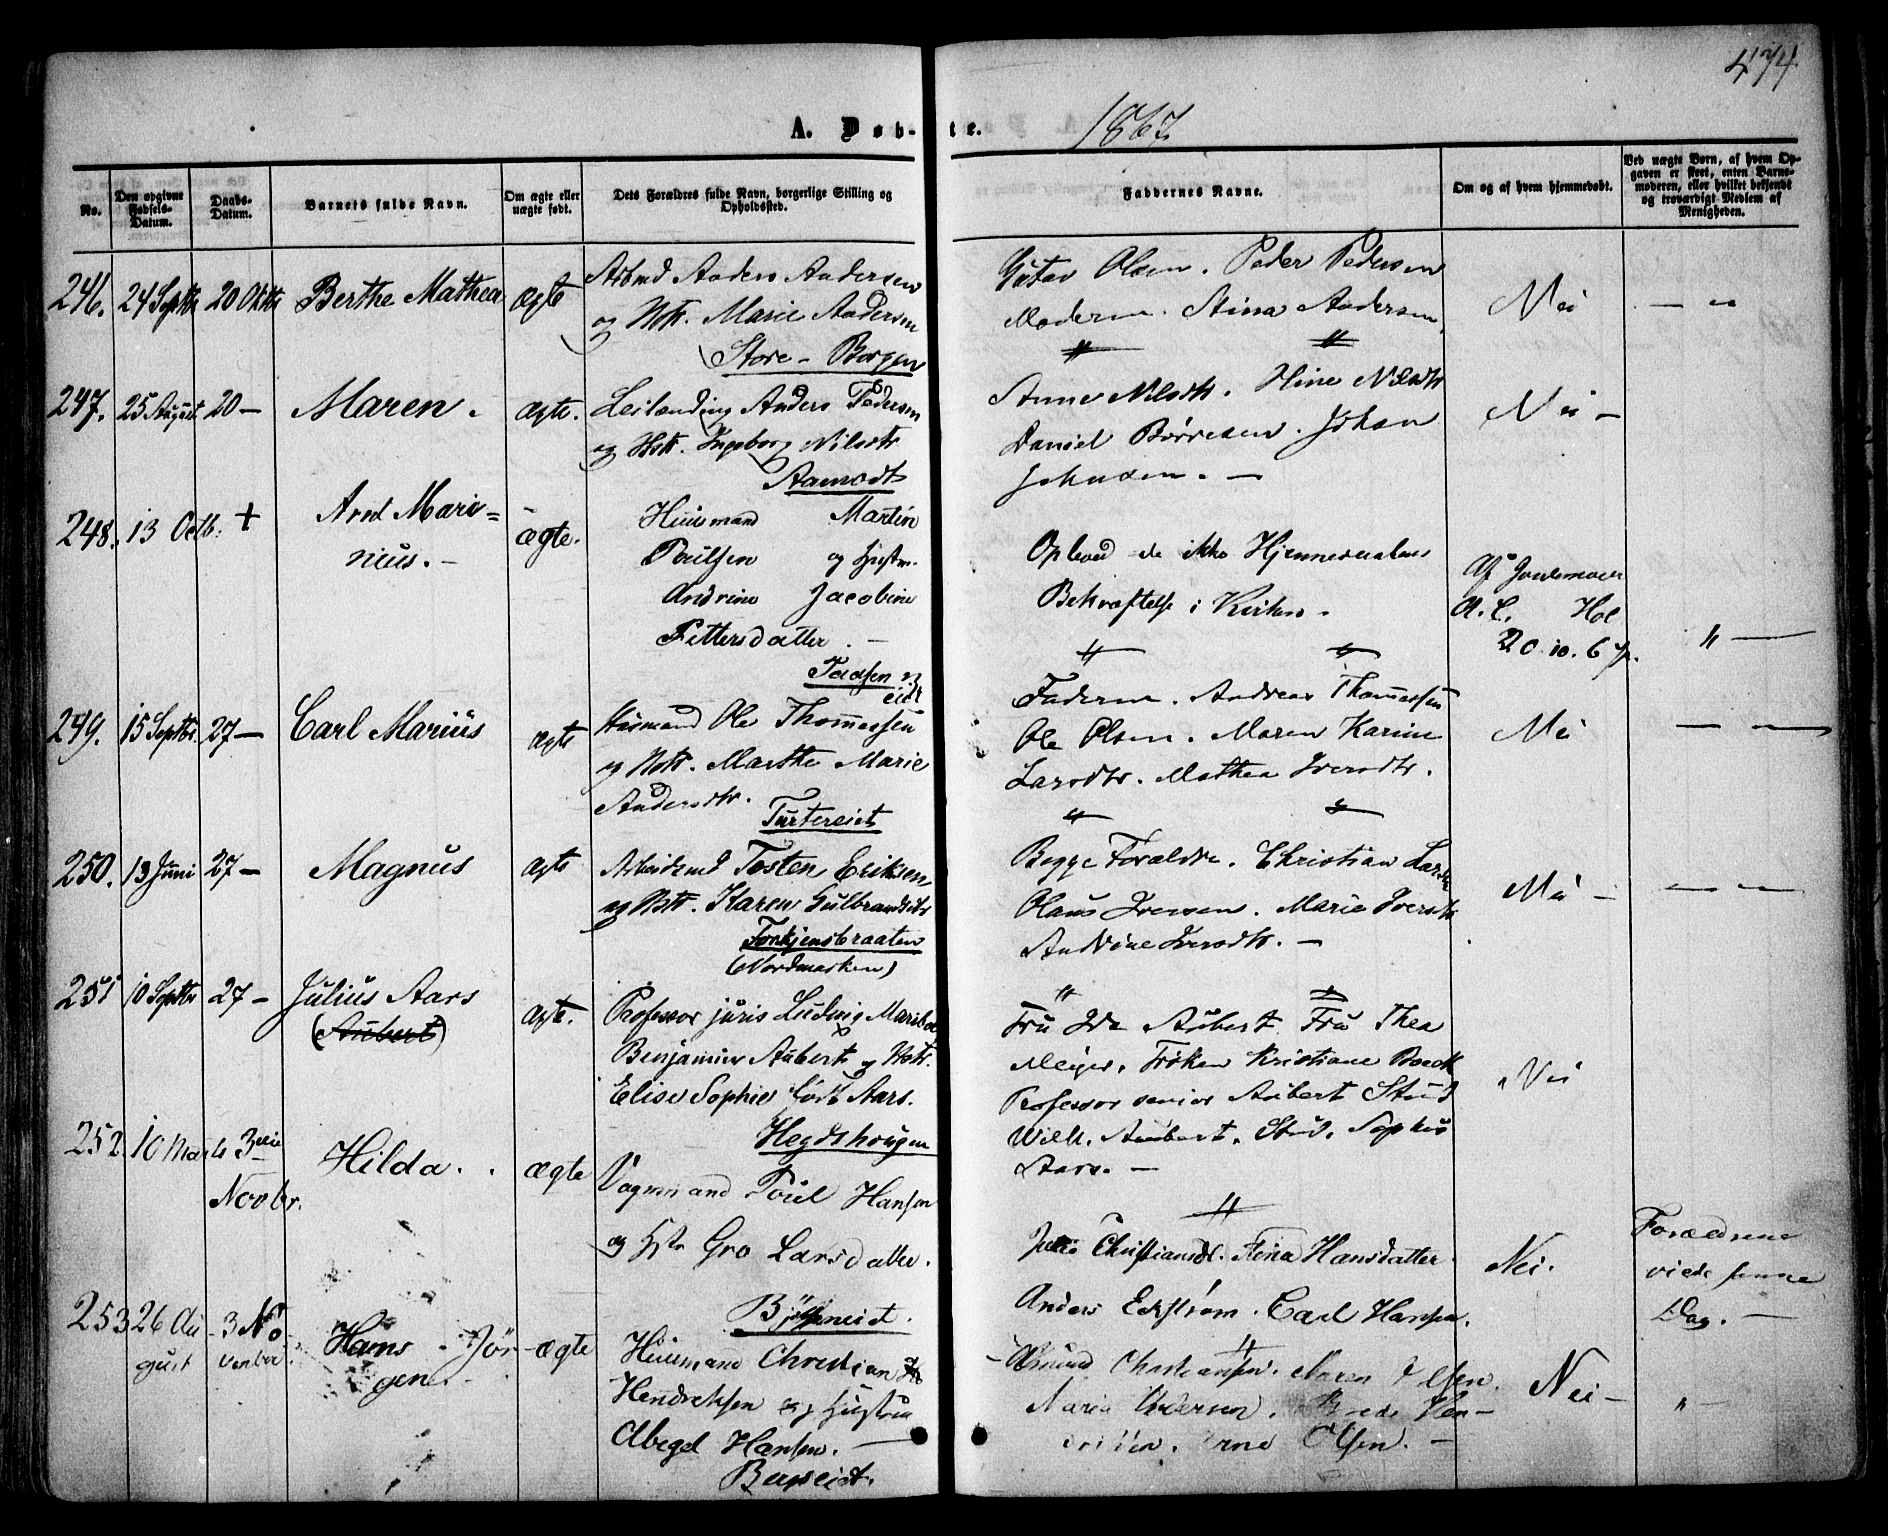 474
A. Døb-te. 1867
No.
Den opgivne Fødsels-Datum.
Daabs-Datum.
Barnets fulde Navn.
Om ægte eller uægte født.
Dets Forældres fulde Navn, borgerlige Stilling og Opholdssted.
Faddernes Navne.
Om og af hvem hjemmedøbt.
Ved uægte Børn, af hvem Opgaven er skeet, enten Barnemoderen, eller hvilket bekjendt og troværdigt Medlem af Menigheden.
246. 24 Septbr 20 Oktbr Berthe Mathea ægte
Arbmd Anders Andersen
og Hstr. Marie Andersen
Store-Borgen
Gustav Olsen. Peder Pedersen
Moderen. Stina Andersen.
Nei
247. 25 August 20 — Maren. ægte.
Leilænding Anders Pedersen
og Hstr. Ingeborg Nilsdtr
Aamodt
Anne Nilsdtr. Stine Nilsdtr
Daniel Børresen. Johan
Johnsen. —
Nei —
248. 13 Octb. + Ared Mari=
nius. — ægte.
Huusmand Martin
Poulsen og Hustr.
Andrine Jacobine
Pettersdatter. —
Oplevede ikke Hjemmedaabens
Bekræftelse i Kirken.
Af Jordemoder
A. C. Hol
20.10.67.
"—
249. 15 Septbr. 27 — Carl Marius ægte
Husmand Ole Thomassen
og Hstr. Marthe Marie
Andersdtr.
Turtereiet
Faderen. Andreas Thomassen
Ole Olsen. Maren Karine
Larsdtr. Mathea Iversdtr.
Nei
250. 13 Juni 27 — Magnus ægte
Arbeidsmd Tosten Eriksen
og Hstr. Karen Gulbrandsdtr
Tonkjensbraaten
(Nordmarken)
Begge Forældre. Christian Larsen
Olaus Iversen. Marie Iversdtr
Andrine Iversdtr. —
Nei —
251 10 Septbr 27 — Julius Aars
(Aubert) ægte.
Professor juris Ludvig Maribo
Benjamin Aubert og Hstr.
Elise Sophie født Aars.
Hegdehougen
Fru Ida Aubert. Fru Thea
Meijer. Frøken Kristiane Boeck
Professor senior Aubert Stud
Wilh. Aubert. Stud. Sophus
Aars. —
Nei
252. 10 Marts 3die
Novbr. Hilda. ægte
Vognmand Poul Hansen
og Hstr Gro Larsdatter.
Julie Christiansd. Stina Hansdatter.
Anders Eckstrøm. Carl Hansen.
Nei.
Forældrene
viede samme
Dag. —
253 26 Au
gust 3 No
vember. Hans Jør-
gen. ægte
Huusmand Christian
Hendriksen og Hustru
Abegel Hansen. —
Asmund Christiansen. Maren Olsen.
Maria Andersen. Brede Hen-
driksen. Arne Olsen. —
Nei —
"—